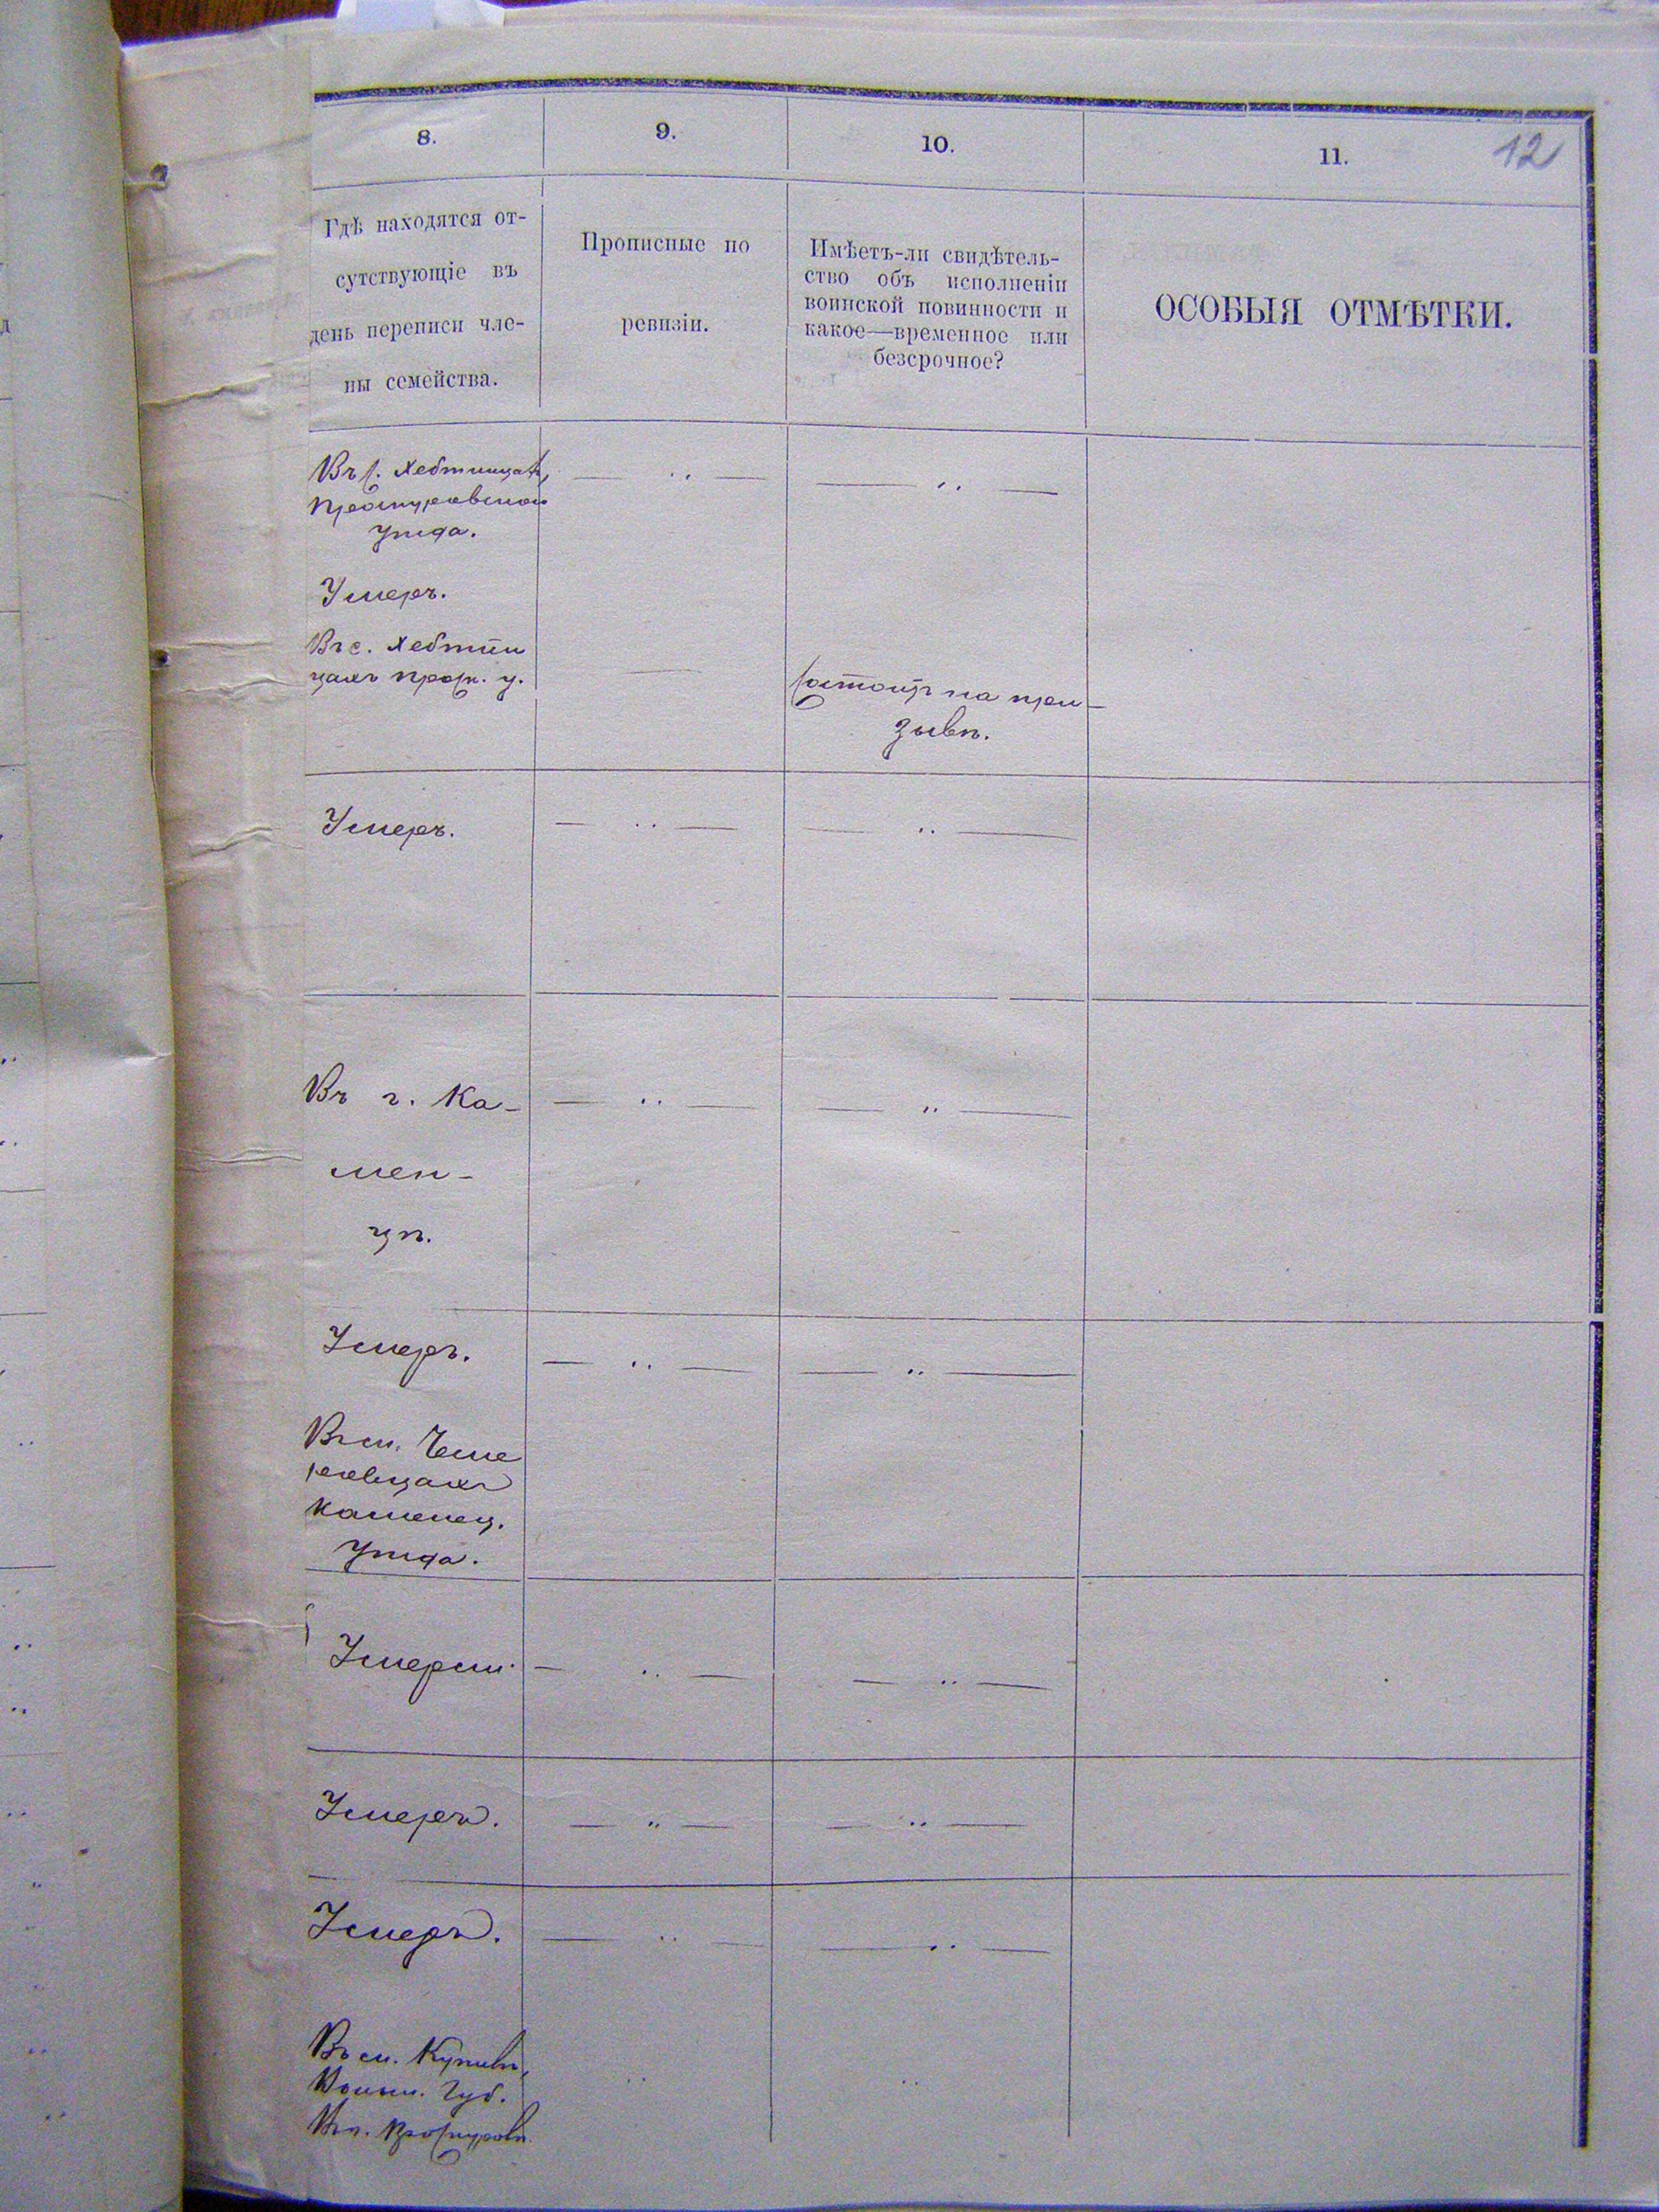 8.
9.
10.
11.
12
Гдѣ находятся от-
сутствующіе въ
день переписи чле-
ны семейства.
Прописные по
ревизіи.
Имѣетъ-ли свидѣтель-
ство объ исполненіи
воинской повинности и
какое—временное или
безсрочное?
ОСОБЫЯ ОТМѢТКИ.
Въ с. Хебтіицахъ,
Проскуровскаго
уѣзда.
Умеръ.
Въ с. Хебтіи
цахъ Проск. у.
Состоитъ на при-
зывѣ.
Умеръ.
Въ г. Ка-
мен-
цѣ.
Умеръ.
Въ м. Чеме
ровцахъ
Каменец.
уѣзда.
Умерли.
Умеръ.
Умеръ.
Въ м. Купилѣ,
Волын. Губ.
Въ г. Проскуровѣ.